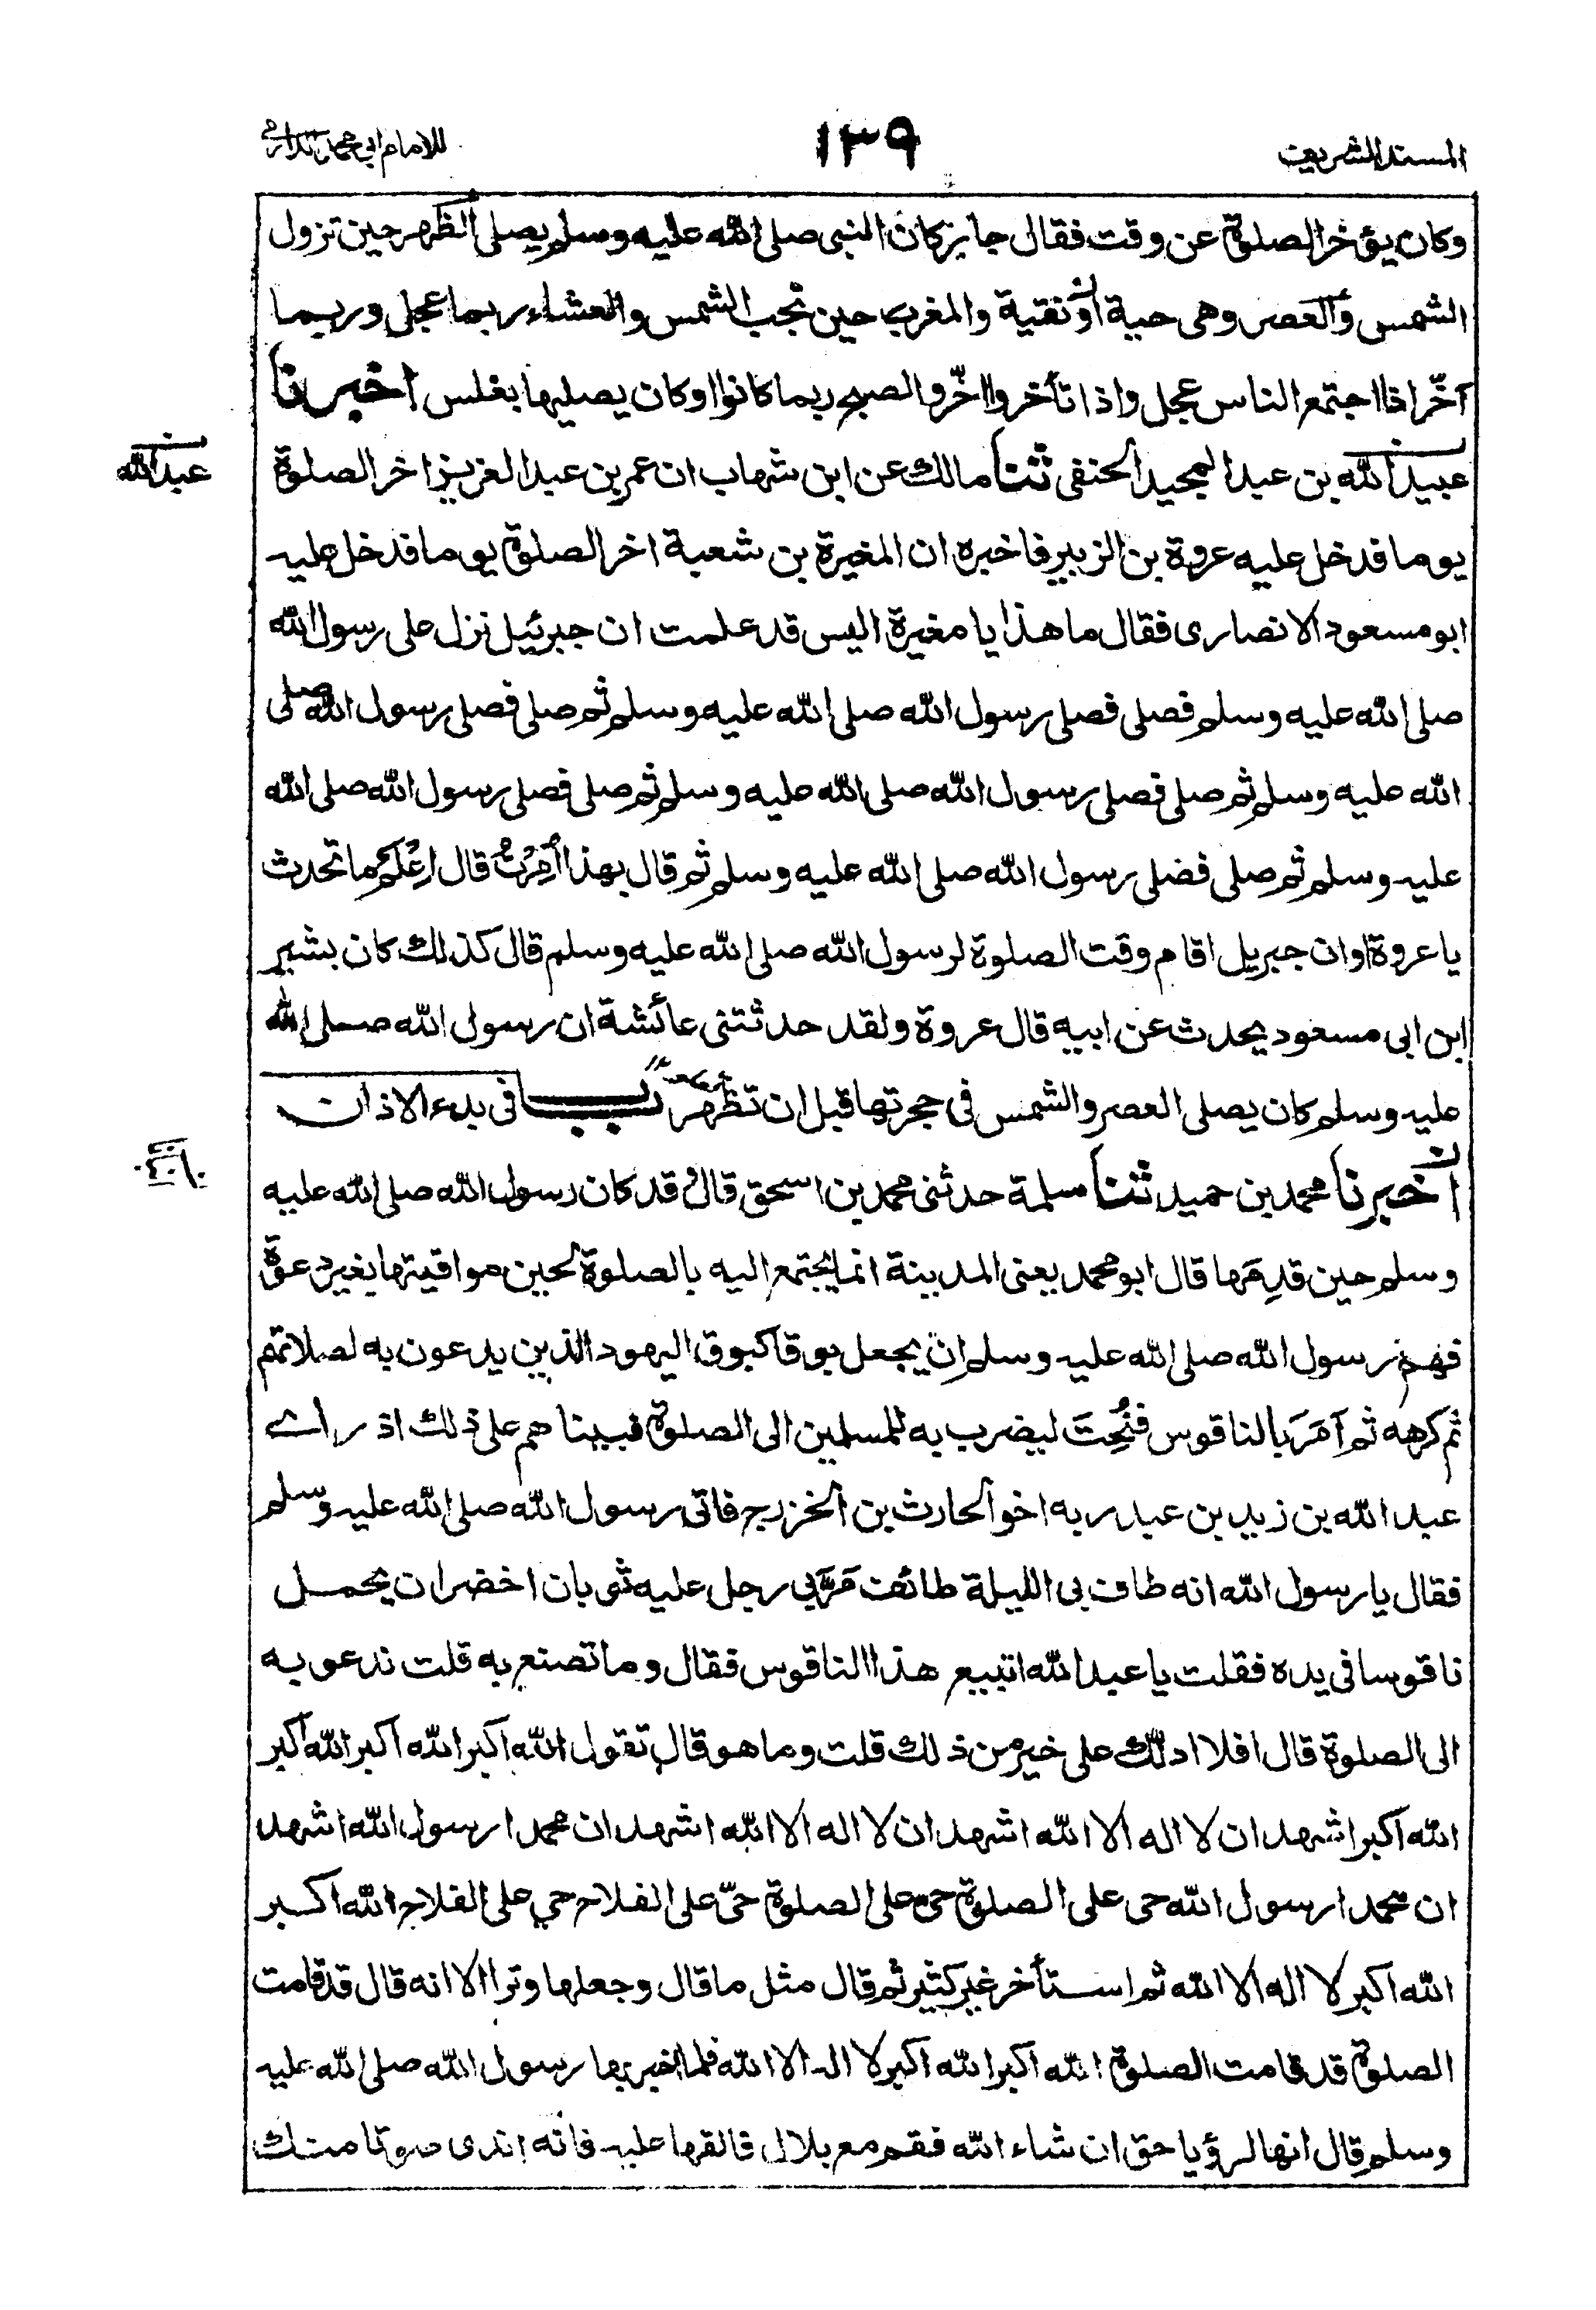 المسند الشريف
١٣٩
للامام ابي محمد الدارمي
وكان يؤخر الصلوة عن وقت فقال جابر كان النبى صلى الله عليه وسلم يصلى الظهر حين تزول
الشمس والعصر وهى حية أو نقية والمغرب حين تجب الشمس والعشاء ربما عجل وربما
أخّر اذا اجتمع الناس عجل واذا تأخروا اخّر والصبح ربما كانوا او كان يصليها بغلس اخبرنا
عبيد الله بن عبد المجيد الحنفى ثنا مالك عن ابن شهاب ان عمر بن عبد العزيز اخر الصلوة
عبد الله
يوما فدخل عليه عروة بن الزبير فاخبره ان المغيرة بن شعبة اخر الصلوة يوما فدخل عليه
ابو مسعود الانصارى فقال ما هذا يا مغيرة اليس قد علمت ان جبرئيل نزل على رسول الله
صلى الله عليه وسلم فصلى فصلى رسول الله صلى الله عليه وسلم ثم صلى فصلى رسول الله صلى
الله عليه وسلم ثم صلى فصلى رسول الله صلى الله عليه وسلم ثم صلى فصلى رسول الله صلى الله
عليه وسلم ثم صلى فضلى رسول الله صلى الله عليه وسلم ثم قال بهذا أُمِرْتُ قال اعْلَم ما تحدث
يا عروة او ان جبريل اقام وقت الصلوة لرسول الله صلى الله عليه وسلم قال كذلك كان بشير
ابن ابى مسعود يحدث عن ابيه قال عروة ولقد حدثتنى عائشة ان رسول الله صلى الله
عليه وسلم كان يصلى العصر والشمس فى حجرتها قبل ان تظهر باب فى بدء الاذان
اخبرنا محمد بن حميد ثنا سلمة حدثنى محمد بن اسحق قال قد كان رسول الله صلى الله عليه
وسلم حين قدِمَها قال ابو محمد يعنى المدينة انما يجتمع اليه بالصلوة لحين مواقيتها بغير دعوة
فهم رسول الله صلى الله عليه وسلم ان يجعل بوقا كبوق اليهود الذين يدعون به لصلاتهم
ثم كرهه ثم أمَرَ بالناقوس فنُحِتَ ليضرب به للمسلمين الى الصلوة فبينا هم على ذلك اذ راے
عبد الله بن زيد بن عبد ربه اخو الحارث بن الخزرج فاتى رسول الله صلى الله عليه وسلم
فقال يا رسول الله انه طاف بى الليلة طائف مَرَّ بي رجل عليه ثوبان اخضران يحمل
ناقوسا فى يده فقلت يا عبد الله اتبيع هذا الناقوس فقال وما تصنع به قلت ندعو به
الى الصلوة قال افلا ادلّك على خير من ذلك قلت وما هو قال تقول الله اكبر الله اكبر الله اكبر
الله اكبر اشهد ان لا اله الا الله اشهد ان لا اله الا الله اشهد ان محمدا رسول الله اشهد
ان محمدا رسول الله حى على الصلوة حى على الصلوة حىّ على الفلاح حي على الفلاح الله اكبر
الله اكبر لا اله الا الله ثم استأخر غير كثير ثم قال مثل ما قال وجعلها وترا الا انه قال قد قامت
الصلوة قد قامت الصلوة الله اكبر الله اكبر لا اله الا الله فلما اخبر بها رسول الله صلى الله عليه
وسلم قال انها لرؤيا حق ان شاء الله فقم مع بلال فالقها عليه فانه اندى صوتا منك